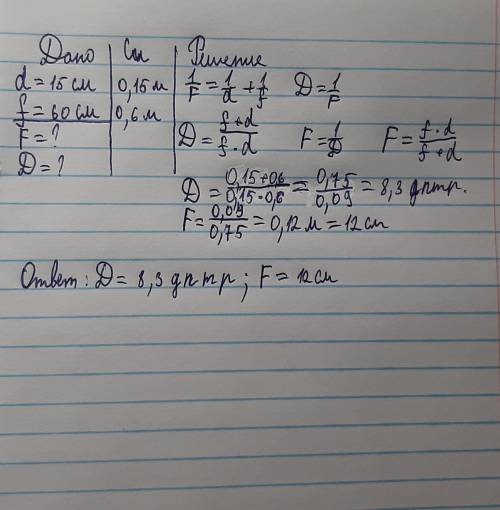 Дано Си Решение
d = 15 см 0,15 м 1/F = 1/d + 1/f D = 1/F
f = 60 см 0,6 м
F = ? D = f+d/f·d F = 1/D F = f·d/f+d
D = ?
D = 0,15+0,6/0,15·0,6 = 0,75/0,09 = 8,3 дптр.
F = 0,09/0,75 = 0,12 м = 12 см
Ответ: D = 8,3 дптр; F = 12 см